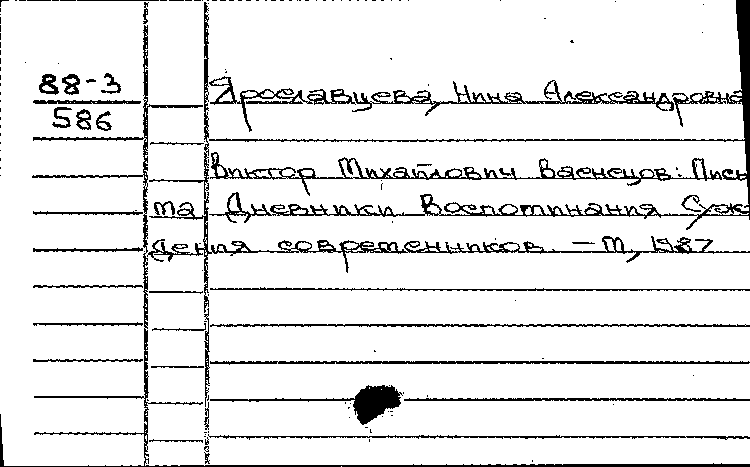 88-3
586
Ярославцева, Нина Александровна
Виктор Михайлович Васнецов: Пись
ма Дневники Воспоминания Суж
дения современников. – М, 1987